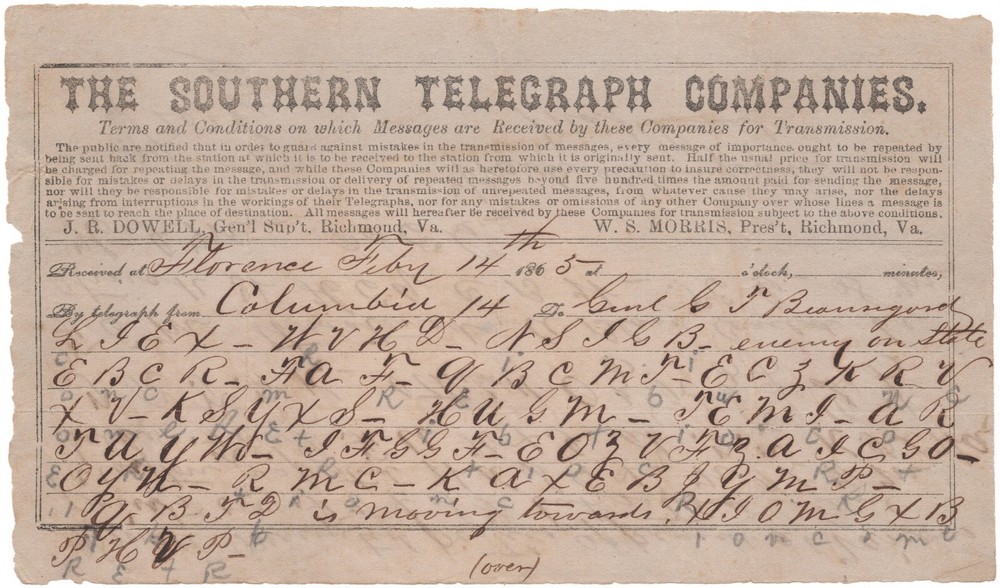 THE SOUTHERN TELEGRAPH COMPANIES.
Terms and Conditions on which Messages are Received by these Companies for Transmission.
The public are notified that in order to guard against mistakes in the transmission of messages, every message of importance ought to be repeated by
being sent back from the station at which it is to be received to the station from which it is originally sent. Half the usual price for transmission will
be charged for repeating the message, and while these Companies will as heretofore use every precaution to insure correctness, they will not be respon-
sible for mistakes or delays in the transmission or delivery of repeated messages beyond five hundred times the amount paid for sending the message,
nor will they be responsible for mistakes or delays in the transmission of unrepeated messages, from whatever cause they may arise, nor for delays
arising from interruptions in the workings of their Telegraphs, nor for any mistakes or omissions of any other Company over whose lines a message is
to be sent to reach the place of destination. All messages will hereafter be received by these Companies for transmission subject to the above conditions.
J. R. DOWELL, Gen'l Sup't, Richmond, Va. W. S. MORRIS, Pres't, Richmond, Va.
Received at Florence Feby 14th 1865 at o'clock, minutes,
By telegraph from Columbia 14 To Genl G T Beauregard
LIEX - WVHD - NSIGB - enemy on State
EBCR - FAF - QBCMT - ECZKRV
XV - KSYXS - HUGM - TEMI - AR
TUYW - IFGGF - EOZVFZAICGO -
OYU - RMC - KAXEBJYMP -
QBTD is moving towards XIOMGXB
PHVP -
(over)